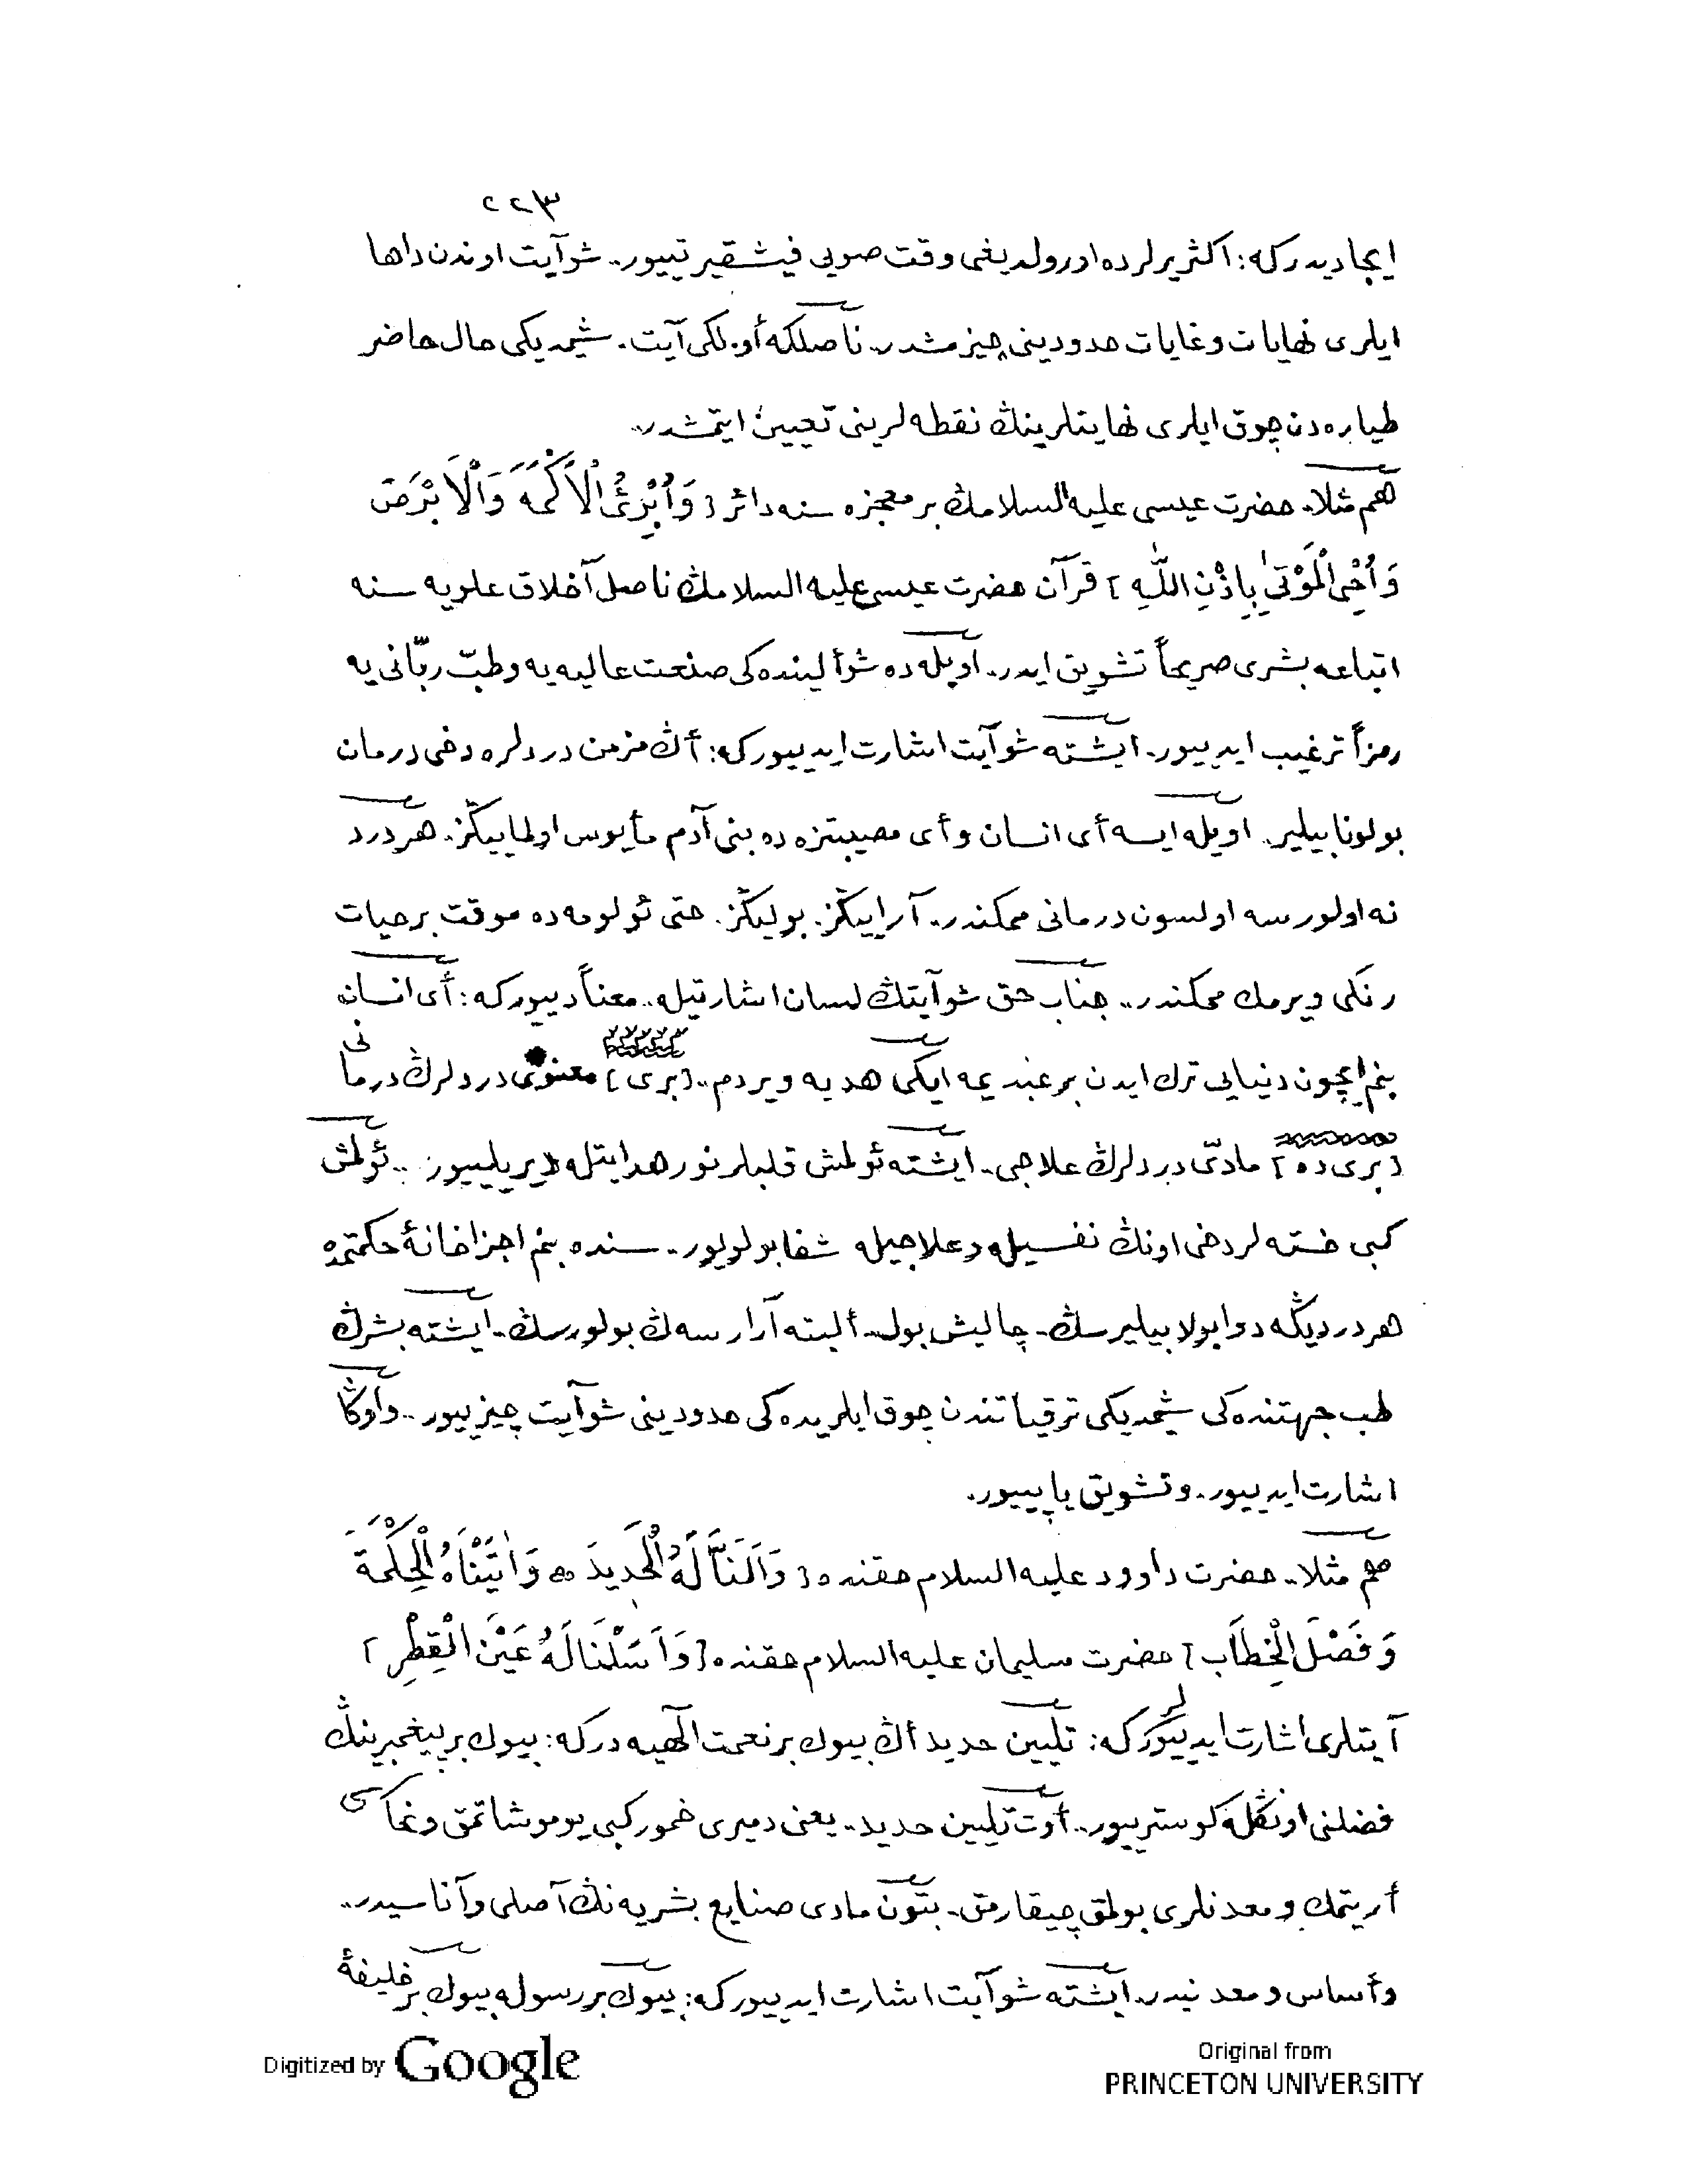 ٢٢٣
ايجاديدركه: اكثر يرلرده اورولديغى وقت صويى فيشقيرتييور.. شو آيت اوندن داها
ايلرى نهايات وغايات حدودينى چيزمشدر.. ناصلكه أوّلكى آيت.. شيمديكى حال حاضر
طياره‌دن چوق ايلرى نهايتلرينڭ نقطه‌لرينى تعيين ايتمشدر..
هم مثلا.. حضرت عيسى عليه السلامڭ بر معجزه سنه دائر [ وَاُبْرِئُ الْاَكْمَهَ وَالْاَبْرَصَ
وَاُحْيِى الْمَوْتٰى بِاِذْنِ اللّٰهِ ] قرآن حضرت عيسى عليه السلامڭ ناصل آخلاق علويه سنه
اتباعه بشرى صريحاً تشويق ايدر.. اويله ده شو ألينده كى صنعت عاليه يه وطبّ ربّانى يه
رمزاً ترغيب ايدييور.. ايشته شو آيت اشارت ايدييوركه: أڭ مزمن دردلره دخى درمان
بولونابيلير. اويله ايسه أى انسان وأى مصيبتزده بنى آدم مأيوس اولمايڭز. هر درد
نه اولورسه اولسون درمانى ممكندر.. آرايڭز. بوليڭز. حتى ئولومه ده موقت بر حيات
رنكى ويرمك ممكندر.. جناب حق شو آيتڭ لسان اشارتيله.. معناً دييوركه: أى انسان
بنم ايچون دنيايى ترك ايدن بر عبديمه ايكى هديه ويردم.. [برى] معنوى دردلرڭ درمانى
[برى ده] مادّى دردلرڭ علاجى.. ايشته ئولمش قلبلر نور هدايتله ديريلييور.. ئولمش
كبى خسته لر دخى اونڭ نفسيله وعلاجيله شفا بولويور.. سنده بنم اجزاخانۀ حكمتمده
هر درديڭه دوا بولابيليرسڭ.. چاليش بول.. ألبته آرارسه‌ڭ بولورسڭ.. ايشته بشرڭ
طب جهتنده كى شيمديكى ترقياتندن چوق ايلريده كى حدودينى شو آيت چيزييور.. واوڭا
اشارت ايدييور.. وتشويق ياپييور.
هم مثلا.. حضرت داوود عليه السلام حقنده [ وَاَلَنَّا لَهُ الْحَدِيدَ ۞ وَاٰتَيْنَاهُ الْحِكْمَةَ
وَفَصْلَ الْخِطَاب ] حضرت سليمان عليه السلام حقنده [ وَاَسَلْنَا لَهُ عَيْنَ الْقِطْرِ ]
آيتلرى اشارت ايدييورلركه: تليين حديد أڭ بيوك بر نعمت الٓهيه دركه: بيوك بر پيغمبرينڭ
فضلنى اونڭله كوسترييور.. أوت تليين حديد.. يعنى دميرى خمور كبى يوموشاتمق ونحاسى
أريتمك ومعدنلرى بولمق چيقارمق.. بتون مادى صنايع بشريه نڭ آصلى وآناسيدر..
وأساس ومعدنيدر.. ايشته شو آيت اشارت ايدييوركه: بيوك بر رسوله بيوك بر خليفۀ
Digitized by Google
Original from
PRINCETON UNIVERSITY